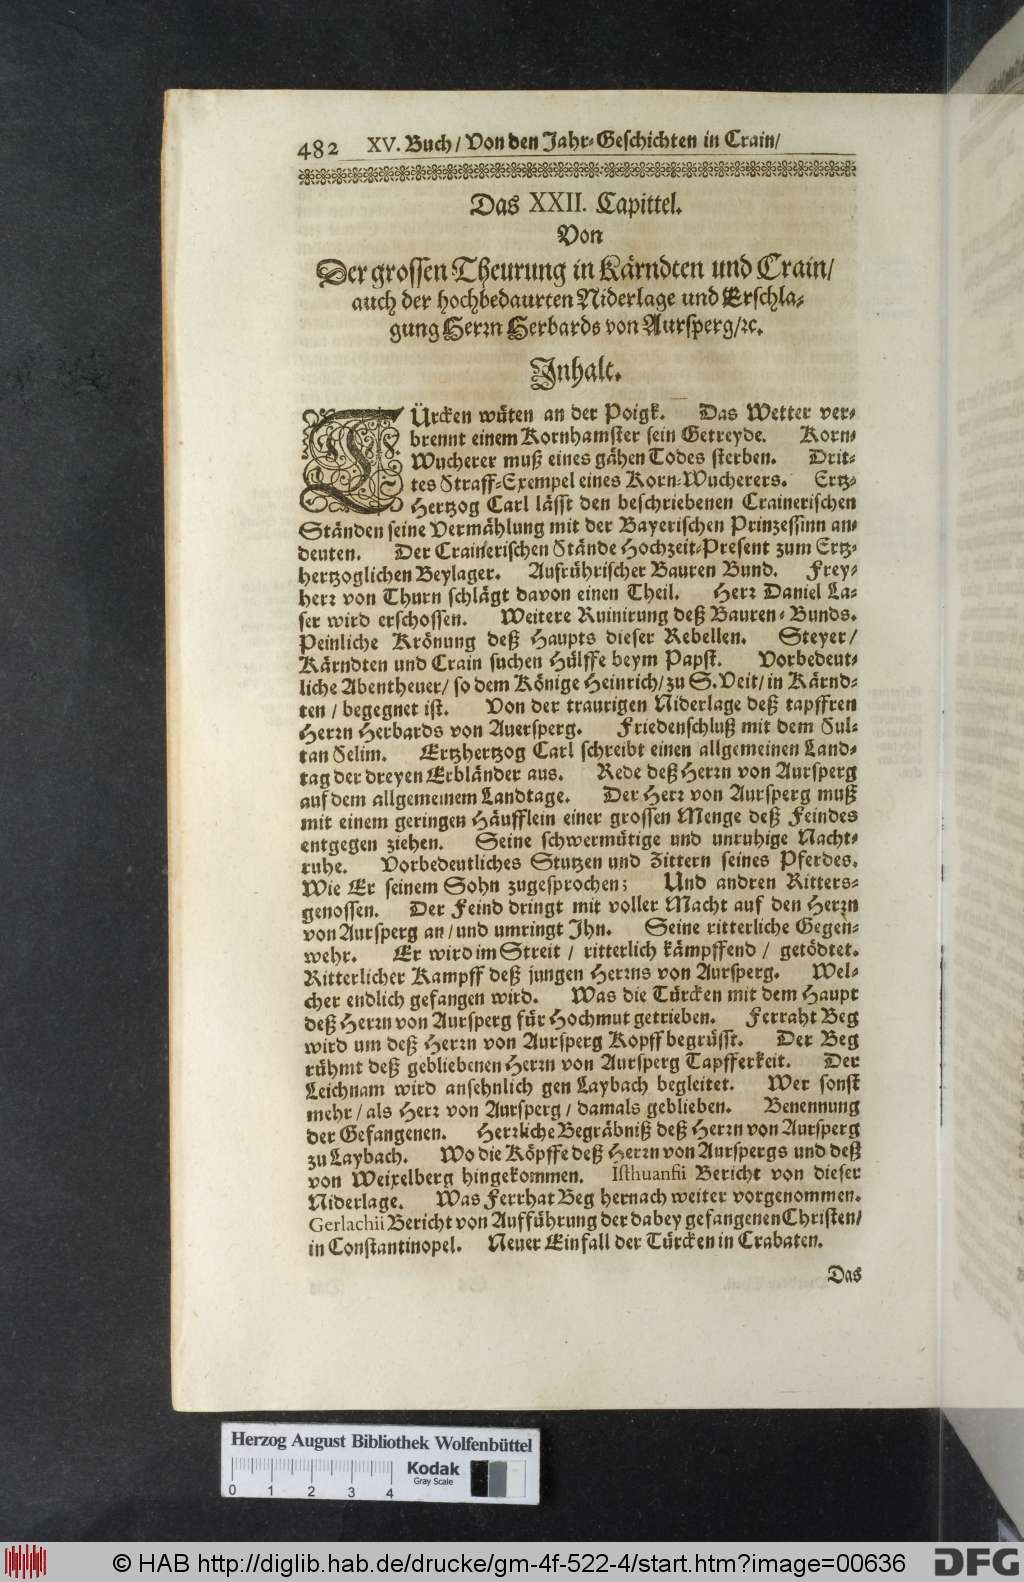 482 XV. Buch / Von den Jahr-Geschichten in Crain /
Das XXII. Capittel.
Von
Der grossen Theurung in Kärndten und Crain /
auch der hochbedaurten Niderlage und Erschla-
gung Herrn Herbards von Aursperg / ꝛc.
Inhalt.
TÜrcken wüten an der Poigk. Das Wetter ver-
brennt einem Kornhamster sein Getreyde. Korn-
Wucherer muß eines gähen Todes sterben. Drit-
tes Straff-Exempel eines Korn-Wucherers. Ertz-
Hertzog Carl lässt den beschriebenen Crainerischen
Ständen seine Vermählung mit der Bayerischen Prinzessinn an-
deuten. Der Crainerischen Stände Hochzeit-Present zum Ertz-
hertzoglichen Beylager. Aufrührischer Bauren Bund. Frey-
herr von Thurn schlägt davon einen Theil. Herr Daniel La-
ser wird erschossen. Weitere Ruinirung deß Bauren-Bunds.
Peinliche Krönung deß Haupts dieser Rebellen. Steyer /
Kärndten und Crain suchen Hülffe beym Papst. Vorbedeut-
liche Abentheuer / so dem Könige Heinrich / zu S. Veit / in Kärnd-
ten / begegnet ist. Von der traurigen Niderlage deß tapffren
Herrn Herbards von Auersperg. Friedenschluß mit dem Sul-
tan Selim. Ertzhertzog Carl schreibt einen allgemeinen Land-
tag der dreyen Erbländer aus. Rede deß Herrn von Aursperg
auf dem allgemeinem Landtage. Der Herr von Aursperg muß
mit einem geringen Häufflein einer grossen Menge deß Feindes
entgegen ziehen. Seine schwermütige und unruhige Nacht-
ruhe. Vorbedeutliches Stutzen und Zittern seines Pferdes.
Wie Er seinem Sohn zugesprochen; Und andren Ritters-
genossen. Der Feind dringt mit voller Macht auf den Herrn
von Aursperg an / und umringt Ihn. Seine ritterliche Gegen-
wehr. Er wird im Streit / ritterlich kämpffend / getödtet.
Ritterlicher Kampff deß jungen Herrns von Aursperg. Wel-
cher endlich gefangen wird. Was die Türcken mit dem Haupt
deß Herrn von Aursperg für Hochmut getrieben. Ferraht Beg
wird um deß Herrn von Aursperg Kopff begrüsst. Der Beg
rühmt deß gebliebenen Herrn von Aursperg Tapfferkeit. Der
Leichnam wird ansehnlich gen Laybach begleitet. Wer sonst
mehr / als Herr von Aursperg / damals geblieben. Benennung
der Gefangenen. Herrliche Begräbniß deß Herrn von Aursperg
zu Laybach. Wo die Köpffe deß Herrn von Aurspergs und deß
von Weixelberg hingekommen. Isthuanfii Bericht von dieser
Niderlage. Was Ferrhat Beg hernach weiter vorgenommen.
Gerlachii Bericht von Aufführung der dabey gefangenen Christen /
in Constantinopel. Neuer Einfall der Türcken in Crabaten.
Das
Herzog August Bibliothek Wolfenbüttel
Kodak
Gray Scale
0 1 2 3 4
© HAB http://diglib.hab.de/drucke/gm-4f-522-4/start.htm?image=00636
DFG